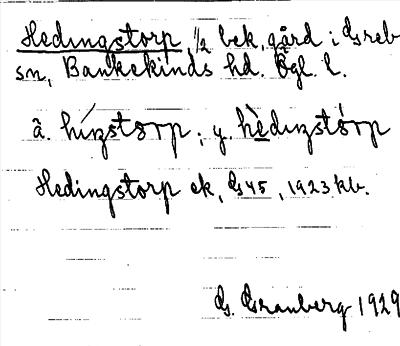 Hedingstorp, 1/2 bek. gård i Greb
sn, Bankekinds hd. Ögl. l.
ä. híŋstɔrp; y. hèdɩŋstórp
Hedingstorp ek, G45, 1923 kb.
G. Granberg 1929